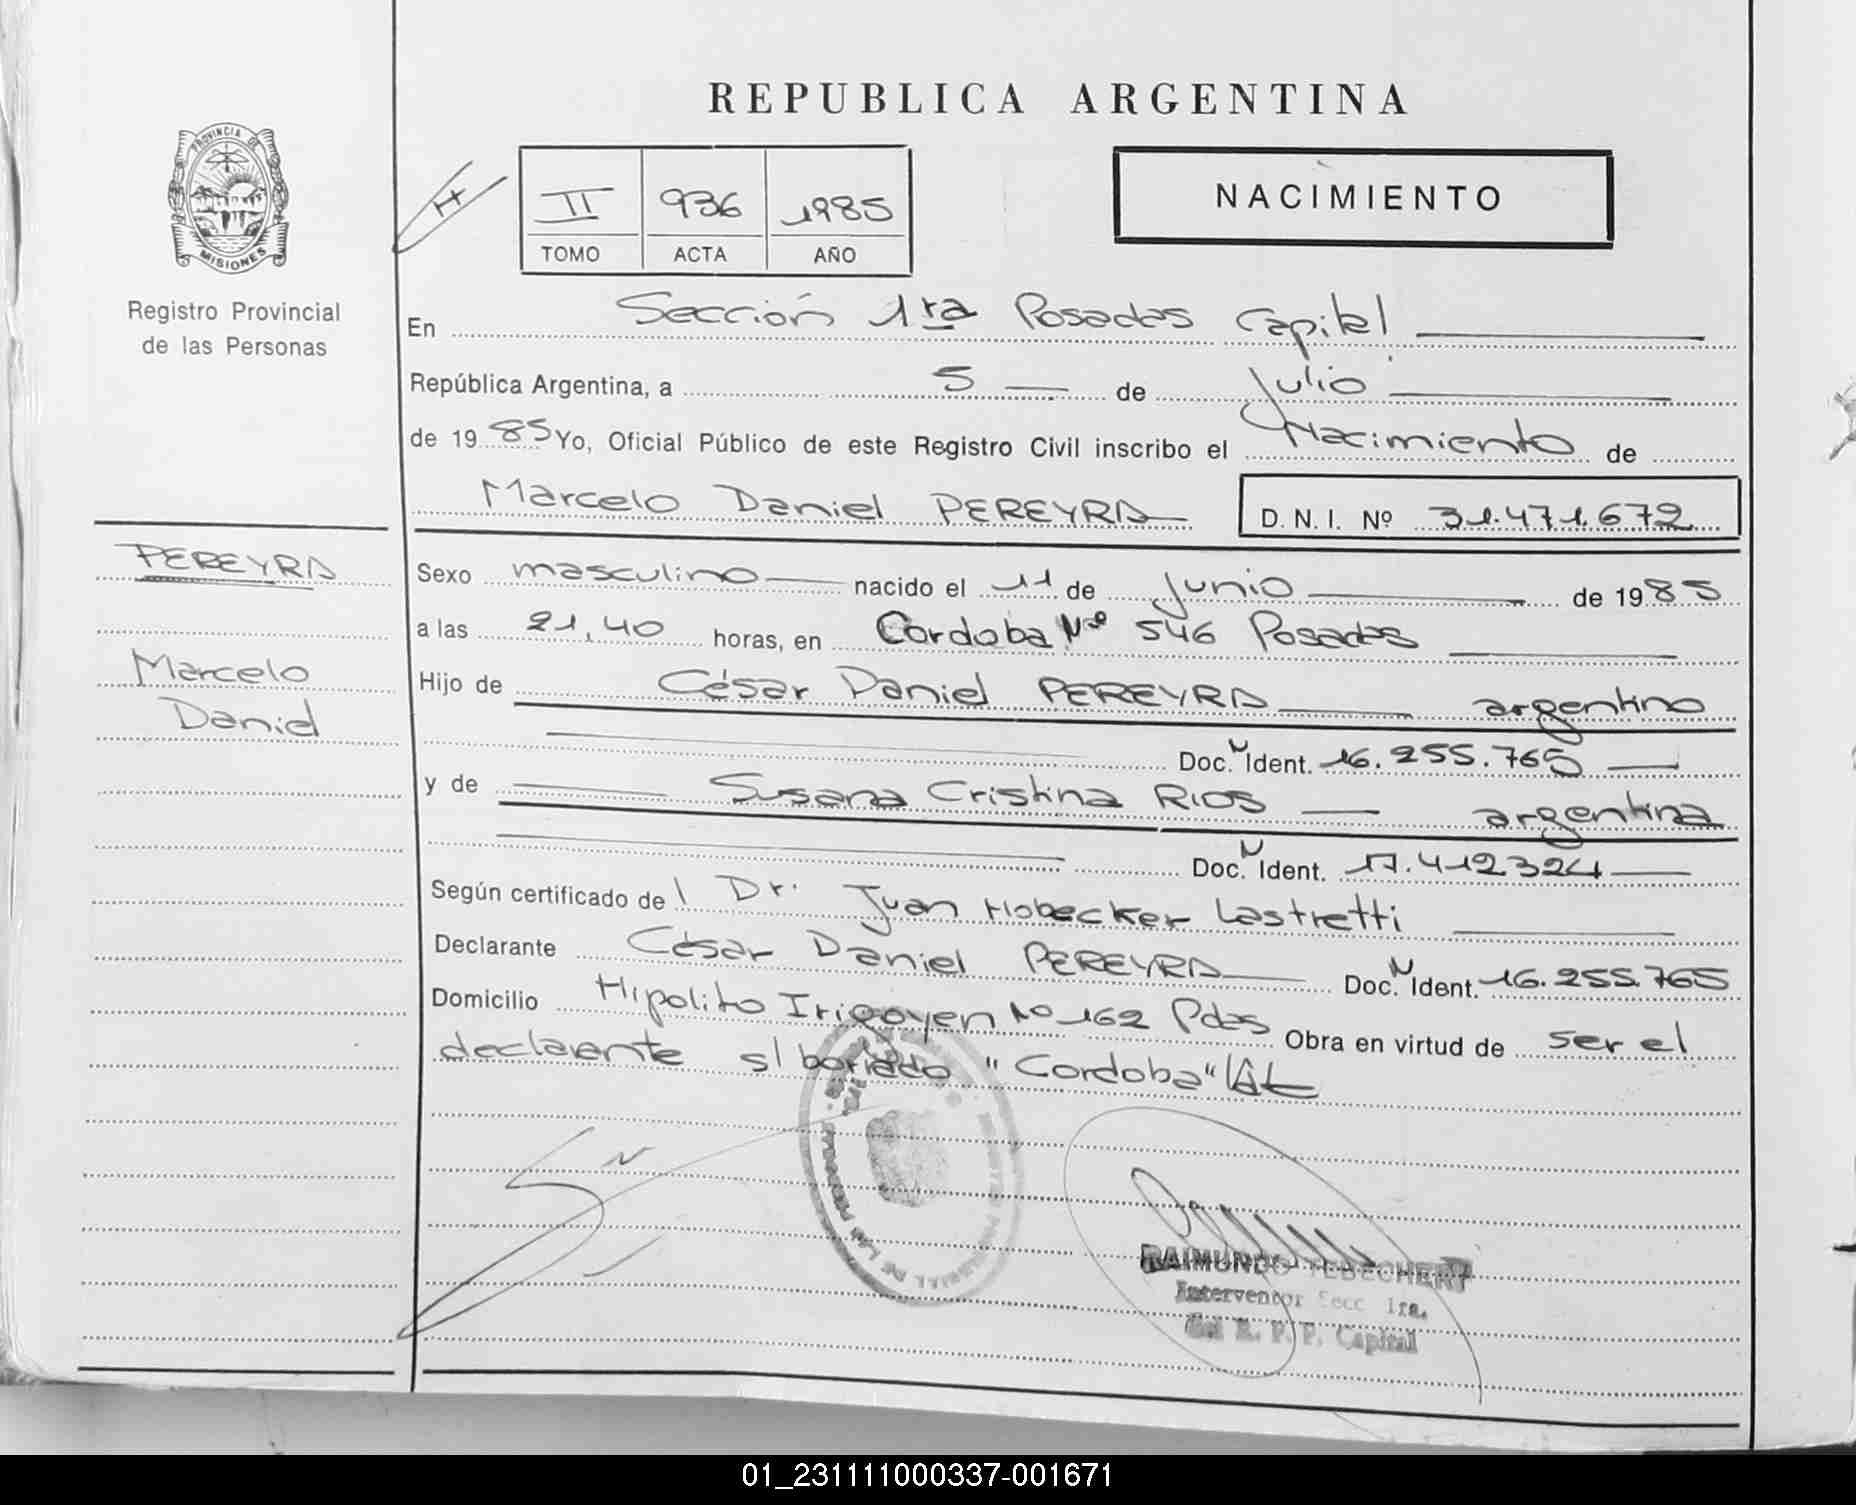 REPUBLICA ARGENTINA
PROVINCIA DE
MISIONES
Registro Provincial
de las Personas
H
II 936 1985
TOMO ACTA AÑO
NACIMIENTO
En Sección 1ra Posadas Capital
República Argentina, a 5 de Julio
de 1985 Yo, Oficial Público de este Registro Civil inscribo el Nacimiento de
Marcelo Daniel PEREYRA D. N. I. Nº 31.471.672
PEREYRA
Marcelo
Daniel
Sexo masculino nacido el 11 de Junio de 1985
a las 21,40 horas, en Cordoba Nº 546 Posadas
Hijo de César Daniel PEREYRA argentino
Doc. N Ident. 16.255.765
y de Susana Cristina RIOS argentina
Doc. N Ident. 17.412324
Según certificado de l Dr. Juan Hobecker Lastretti
Declarante César Daniel PEREYRA Doc. N Ident. 16.255.765
Domicilio Hipolito Irigoyen Nº 162 Pdas Obra en virtud de ser el
declarante s/ borrado "Cordoba"
RAIMUNDO TEBECHERY
Interventor Secc 1ra.
del R. P. P. Capital
01_231111000337-001671